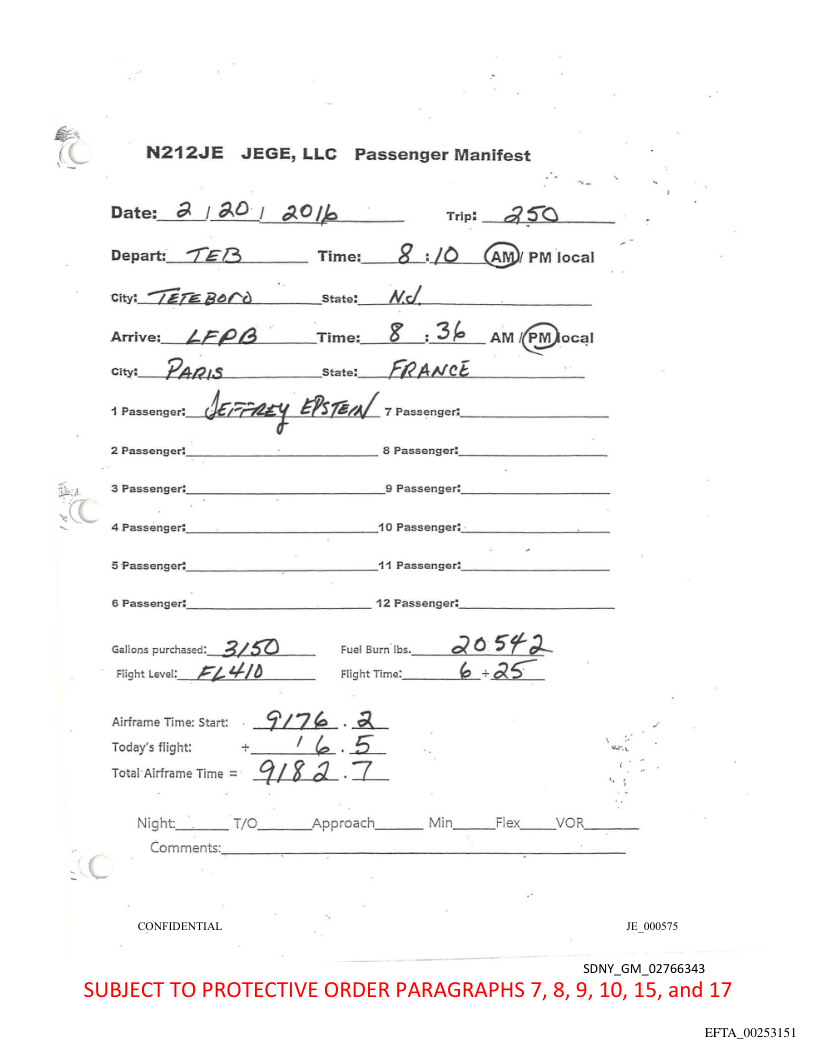 N212JE JEGE, LLC Passenger Manifest
Date: 2 / 20 / 2016 Trip: 250
Depart: TEB Time: 8 : 10 AM / PM local
City: TETEBORO State: NJ
Arrive: LFPB Time: 8 : 36 AM / PM local
City: PARIS State: FRANCE
1 Passenger: JEFFREY EPSTEIN 7 Passenger:
2 Passenger: 8 Passenger:
3 Passenger: 9 Passenger:
4 Passenger: 10 Passenger:
5 Passenger: 11 Passenger:
6 Passenger: 12 Passenger:
Gallons purchased: 3150 Fuel Burn lbs. 20542
Flight Level: FL410 Flight Time: 6 + 25
Airframe Time: Start: 9176 . 2
Today's flight: + ' 6 . 5
Total Airframe Time = 9182 . 7
Night: T/O Approach Min Flex VOR
Comments:
CONFIDENTIAL JE_000575
SDNY_GM_02766343
SUBJECT TO PROTECTIVE ORDER PARAGRAPHS 7, 8, 9, 10, 15, and 17
EFTA_00253151